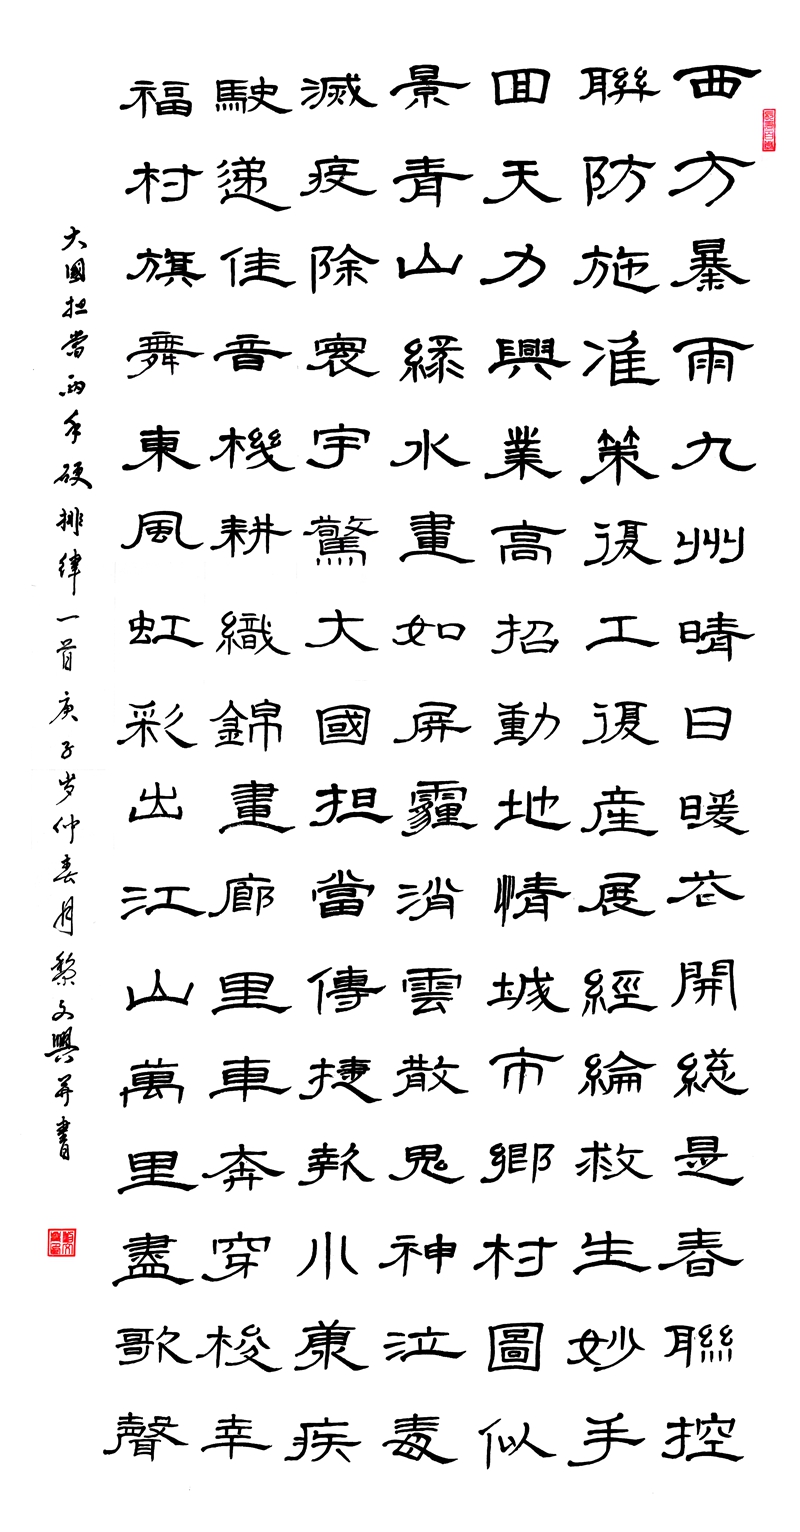 西方暴雨九州晴日暖花開總是春聯控
聯防施准策復工復産展經綸救生妙手
回天力興業高招動地情城市鄉村圖似
景青山緑水畫如屏霾消雲散鬼神泣毒
滅疫除寰宇驚大國担當傳捷報小康疾
駛递佳音機耕織錦畫廊里車奔穿梭幸
福村旗舞東風虹彩出江山萬里盡歌聲
大國担當两手硬排律一首庚子岁仲春月黎文興并書